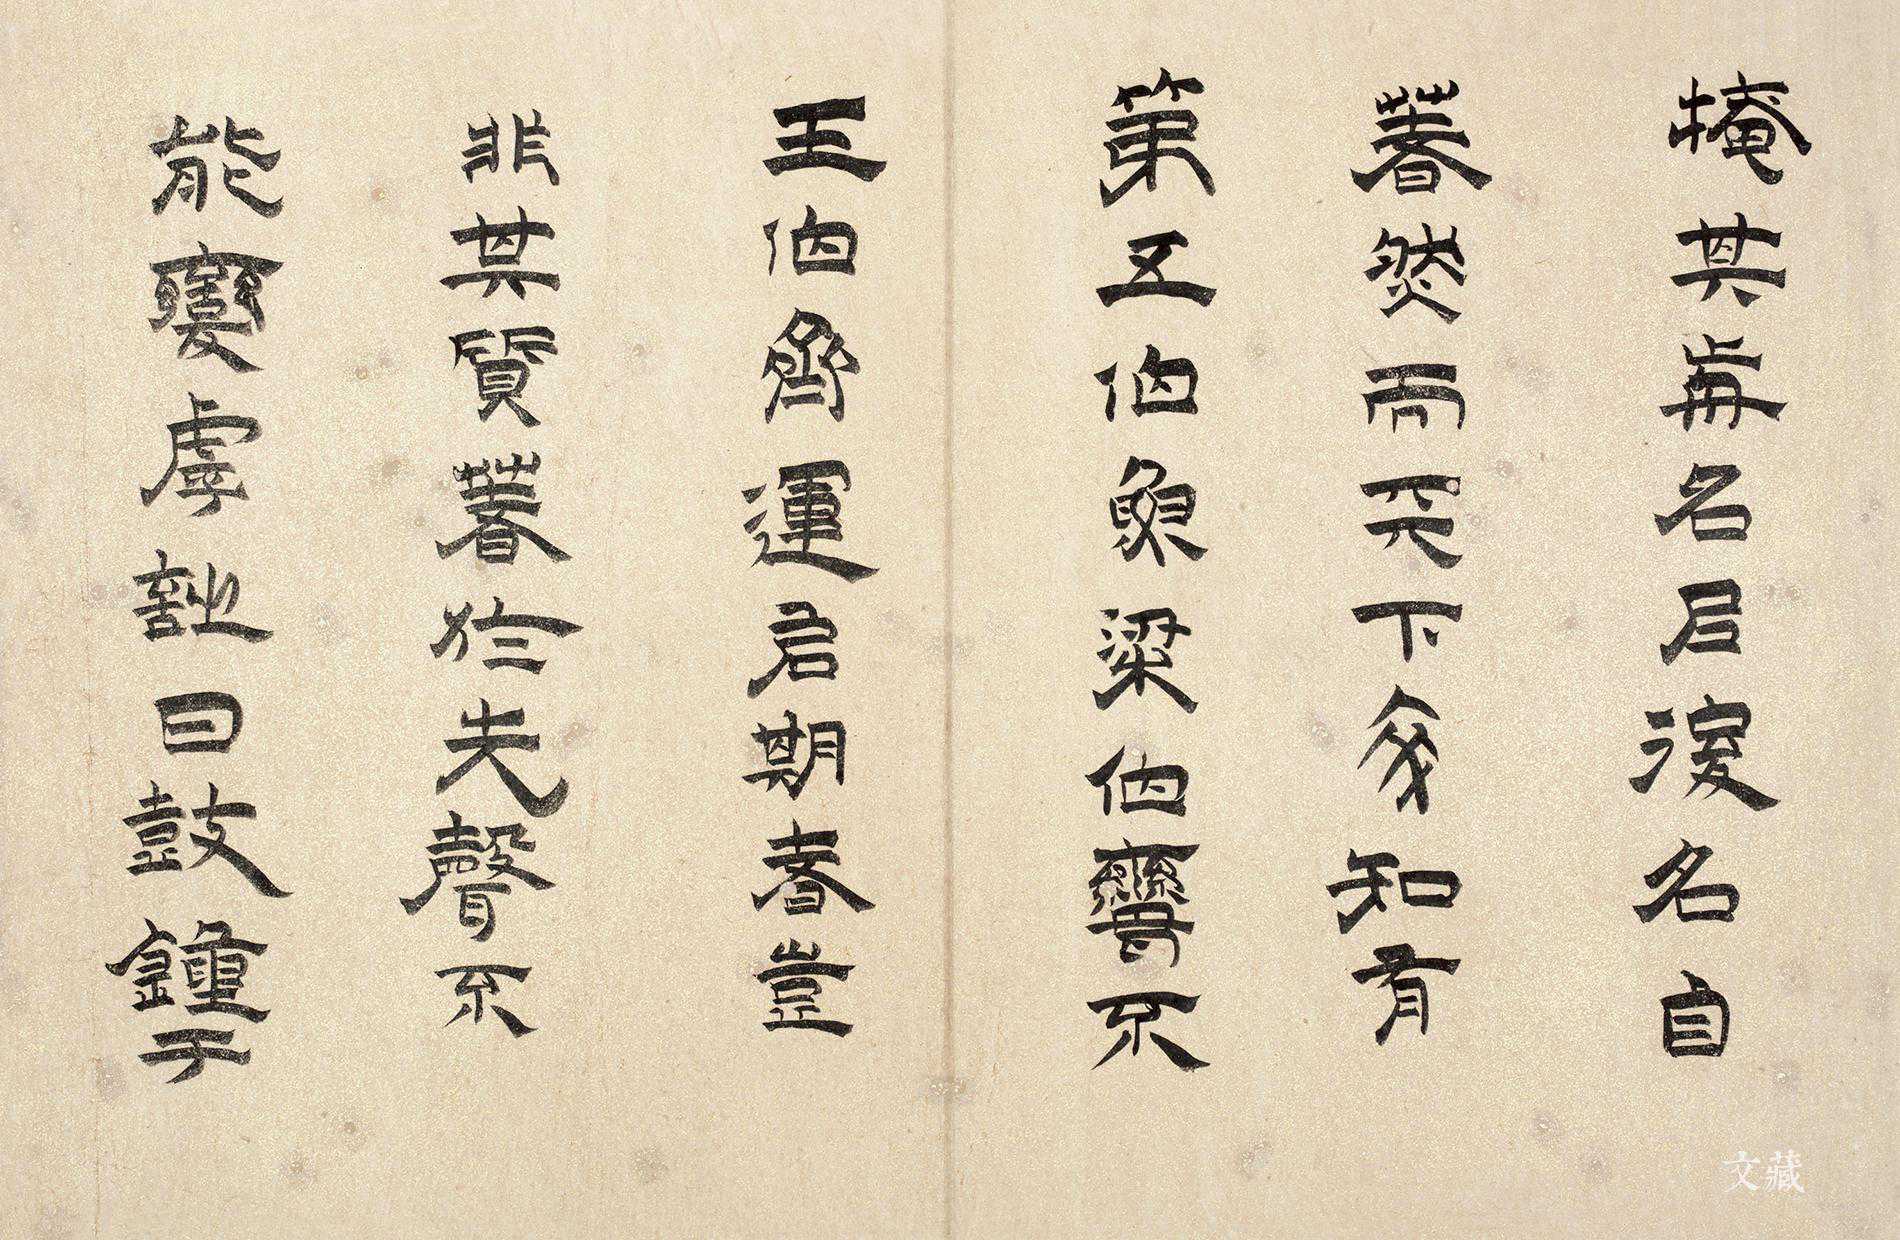 掩其前名居後名自
著然而天下多知有
第五伯魚梁伯鸞不
王伯齊運君期者豈
非其質著於先聲不
能變虖詩曰鼓鐘于
文藏